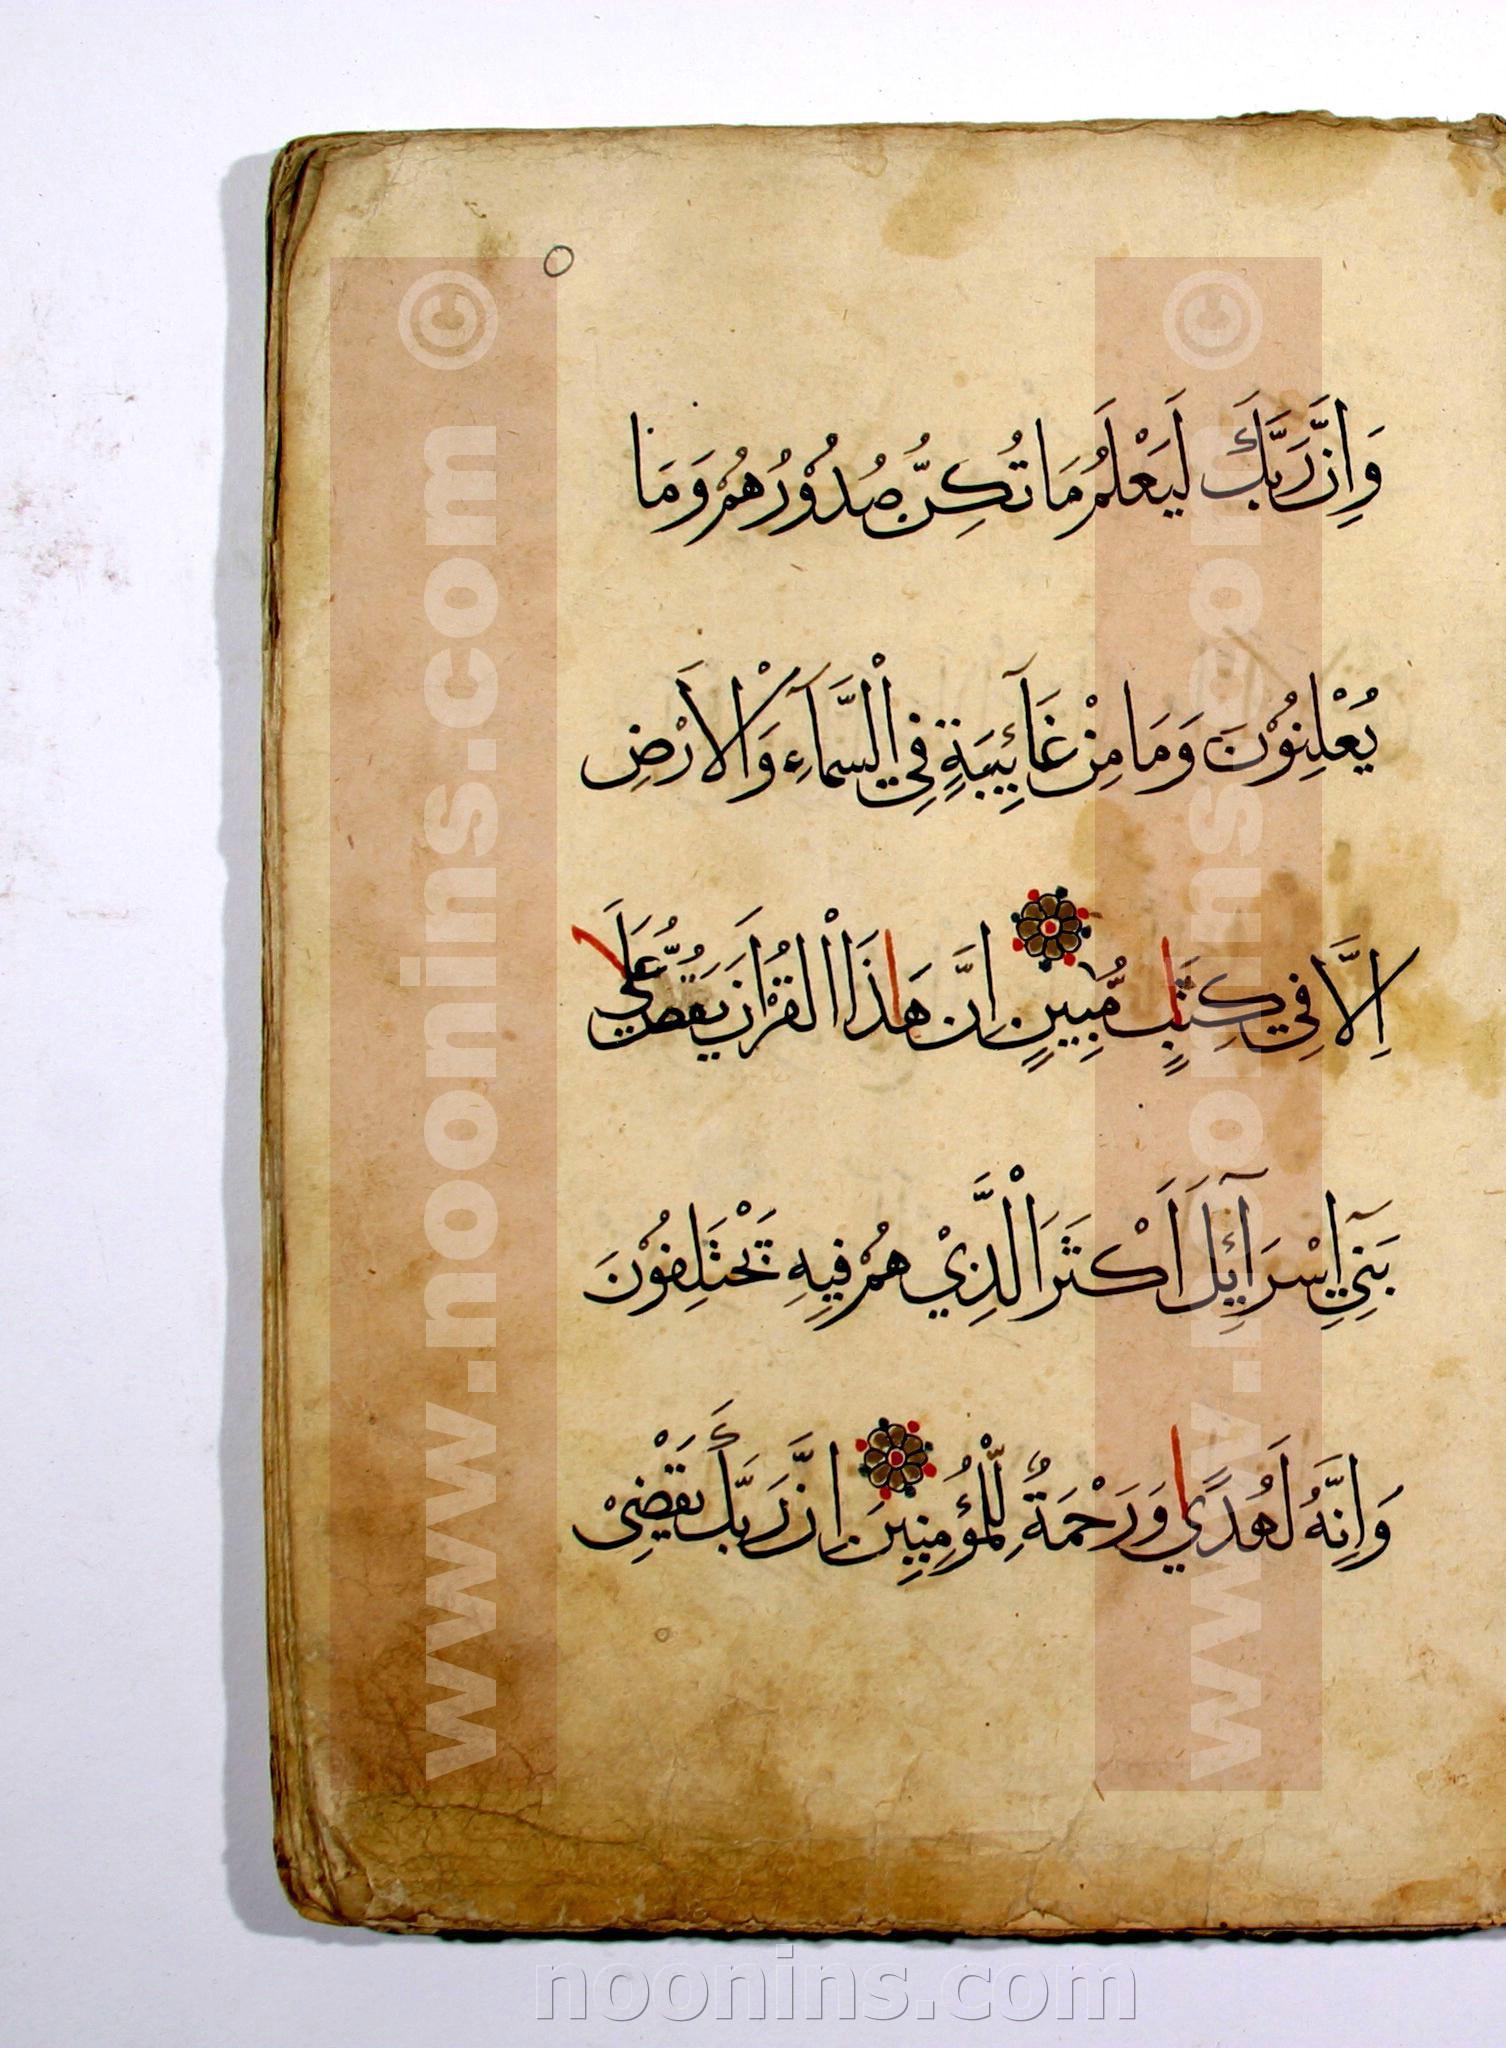 وَاِنَّ رَبَّكَ لَيَعْلَمُ مَا تُكِنُّ صُدُوْرُهُمْ وَمَا
يُعْلِنُوْنَ وَمَا مِنْ غَآئِبَةٍ فِي الْسَّمَآءِ وَالْاَرْضِ
اِلَّا فِي كِتٰبٍ مُّبِينٍ اِنَّ هٰذَا الْقُرْاٰنَ يَقُصُّ عَلٰي
بَنِيٓ اِسْرَآئِلَ اَكْثَرَ الْذَّيْ هُمْ فِيهِ يَخْتَلِفُوْنَ
وَاِنَّهُ لَهُدًي وَرَحْمَةٌ لِّلْمُؤْمِنِينَ اِنَّ رَبَّكَ يَقْضِيْ
www.noonins.com ©
www.noonins.com ©
noonins.com